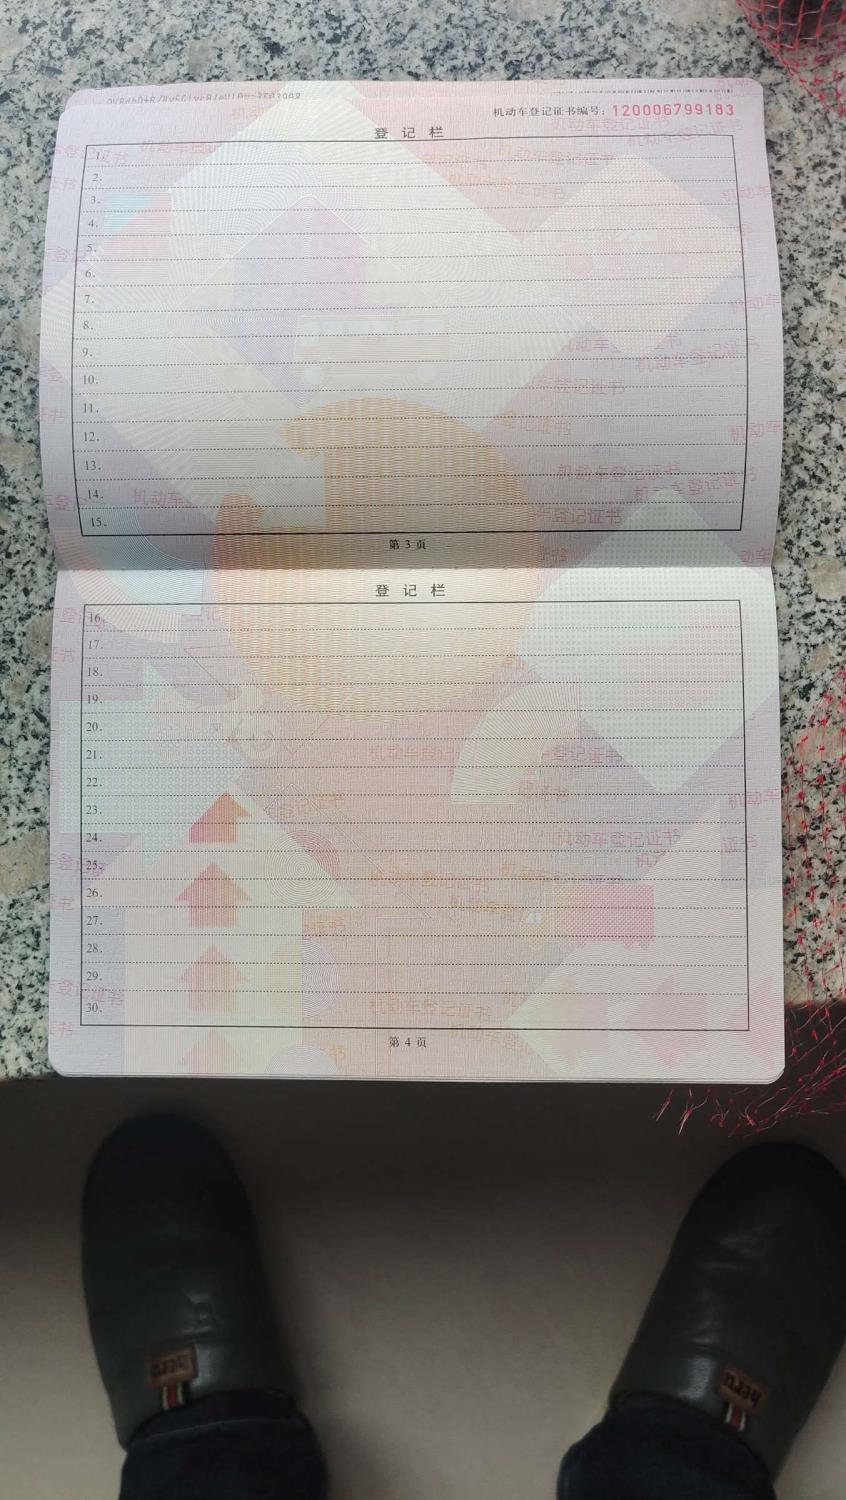 机动车登记证书编号：120006799183
登 记 栏
1.
2.
3.
4.
5.
6.
7.
8.
9.
10.
11.
12.
13.
14.
15.
第 3 页
登 记 栏
16.
17.
18.
19.
20.
21.
22.
23.
24.
25.
26.
27.
28.
29.
30.
第 4 页
heru
heru